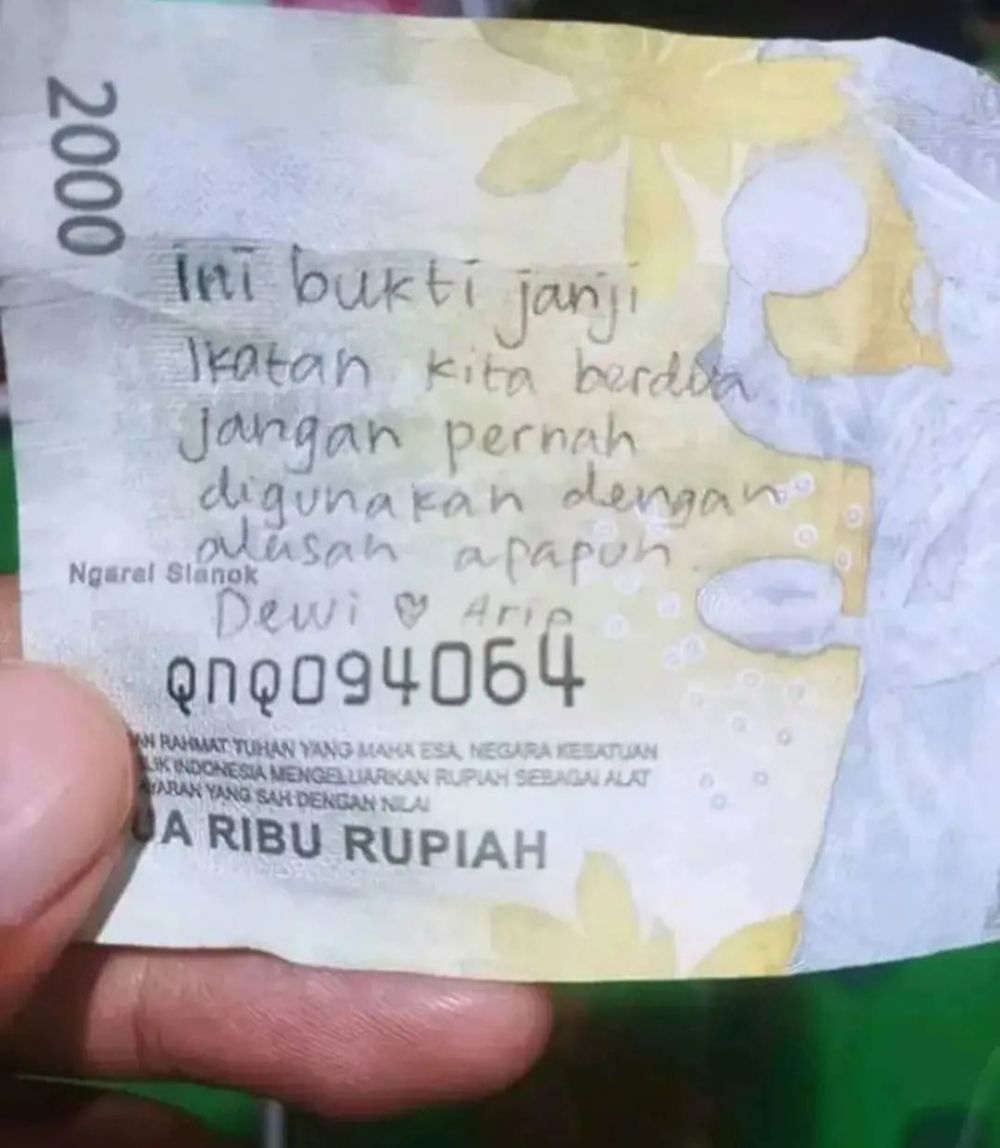 2000
Ini bukti janji
Ikatan kita berdua
Jangan pernah
digunakan dengan
alasan apapun.
Ngarai Sianok
Dewi ♡ Arip
QNQ094064
AN RAHMAT TUHAN YANG MAHA ESA, NEGARA KESATUAN
LIK INDONESIA MENGELUARKAN RUPIAH SEBAGAI ALAT
AYARAN YANG SAH DENGAN NILAI
UA RIBU RUPIAH